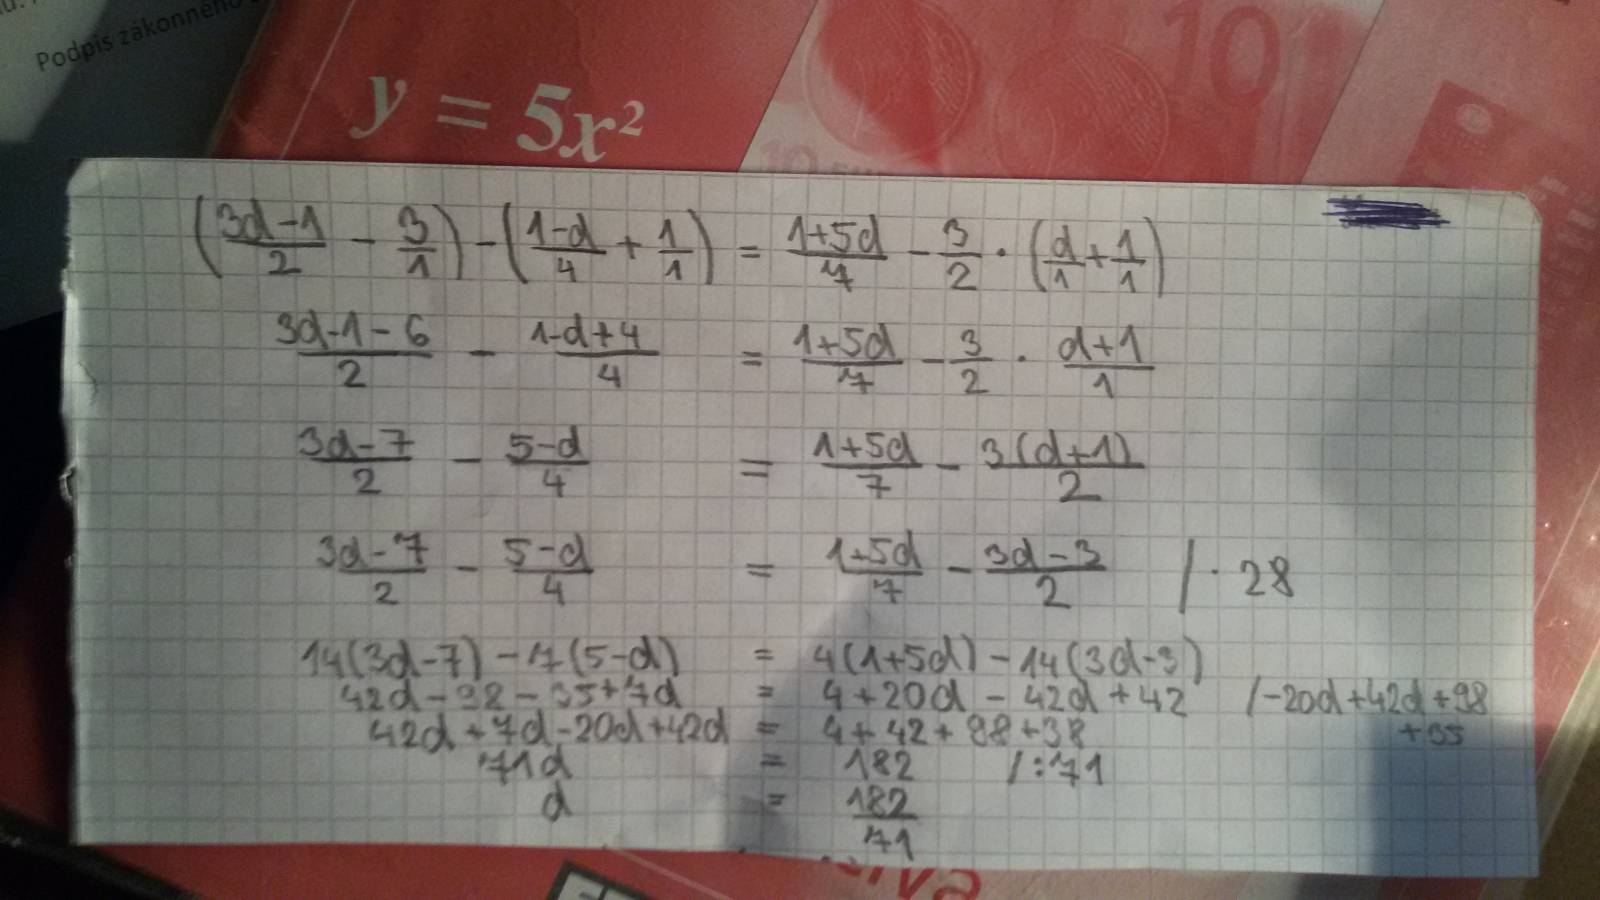 Podpis zákonného
y = 5x²
10
(3d-1/2 - 3/1) - (1-d/4 + 1/1) = 1+5d/7 - 3/2 · (d/1 + 1/1)
3d-1-6/2 - 1-d+4/4 = 1+5d/7 - 3/2 · d+1/1
3d-7/2 - 5-d/4 = 1+5d/7 - 3(d+1)/2
3d-7/2 - 5-d/4 = 1+5d/7 - 3d-3/2 /· 28
14(3d-7) - 7(5-d) = 4(1+5d) - 14(3d-3)
42d - 98 - 35 + 7d = 4 + 20d - 42d + 42 /-20d+42d+98
+35
42d + 7d - 20d + 42d = 4 + 42 + 98 + 38
71d = 182 /:71
d = 182/71